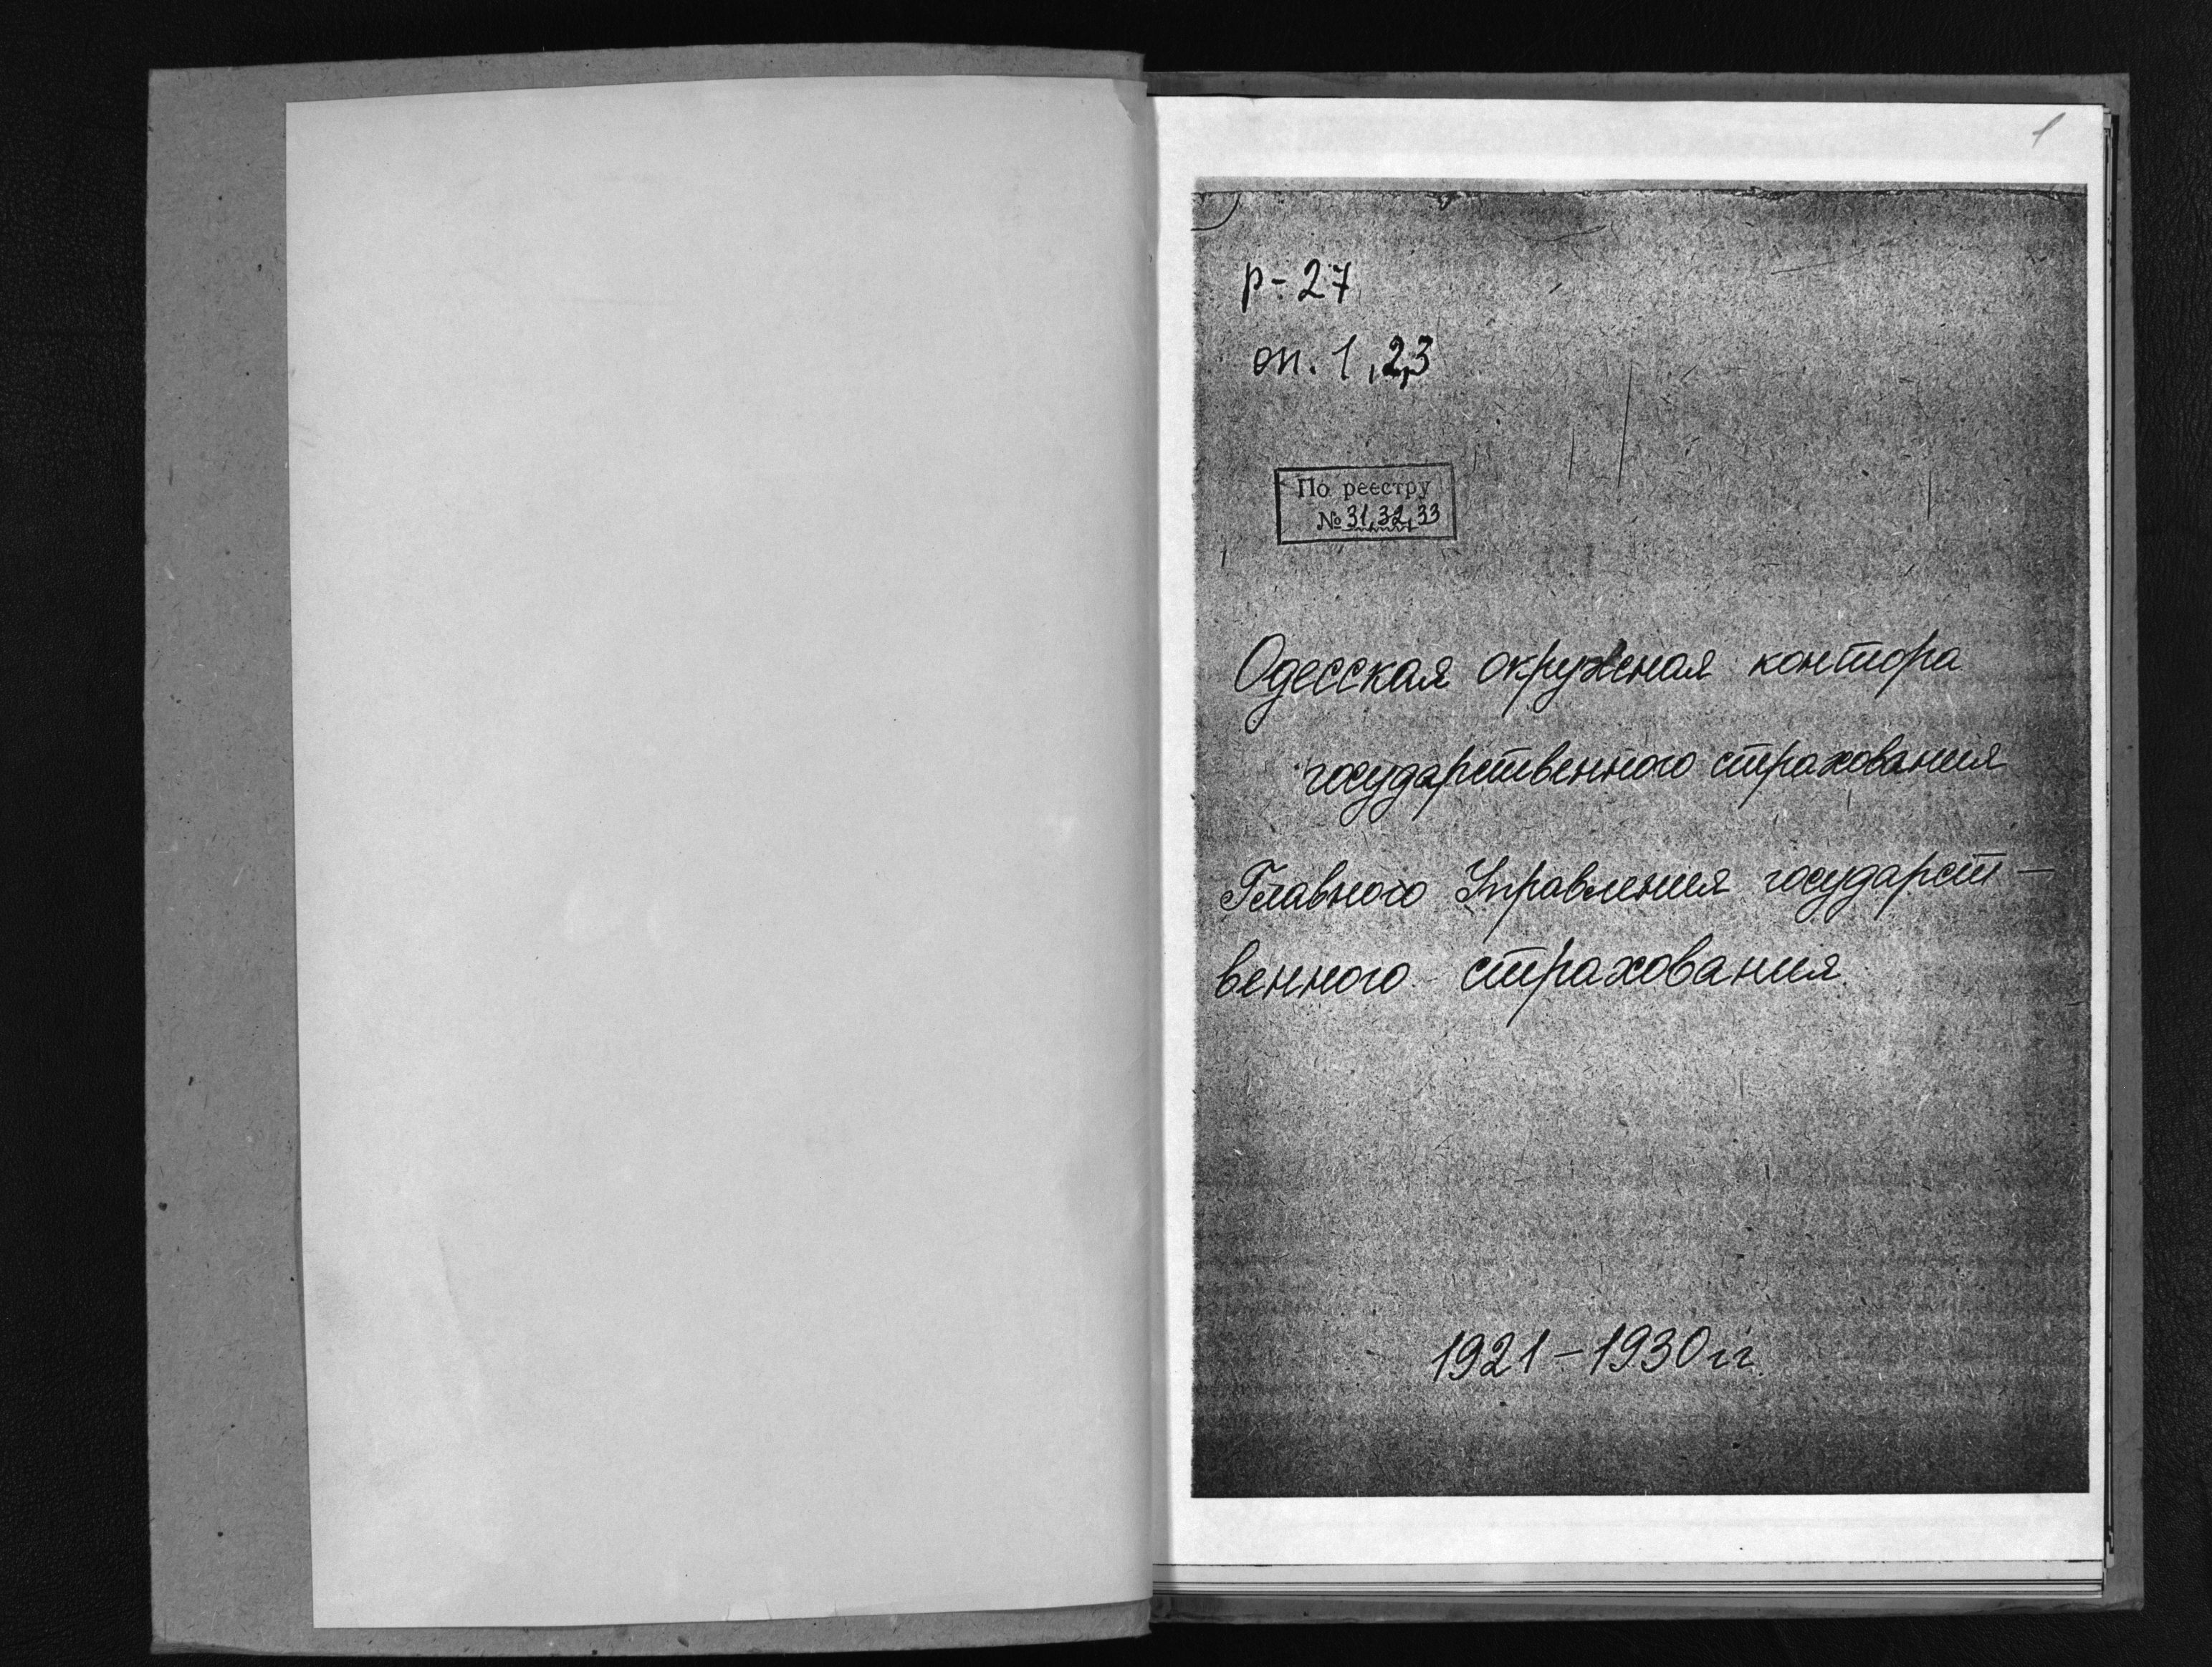 1
р-27
оп. 1,2,3
По реестру
№ 31,32,33
Одесская окружная контора
государственного страхования
Главного Управления государст-
венного страхования
1921-1930 гг.